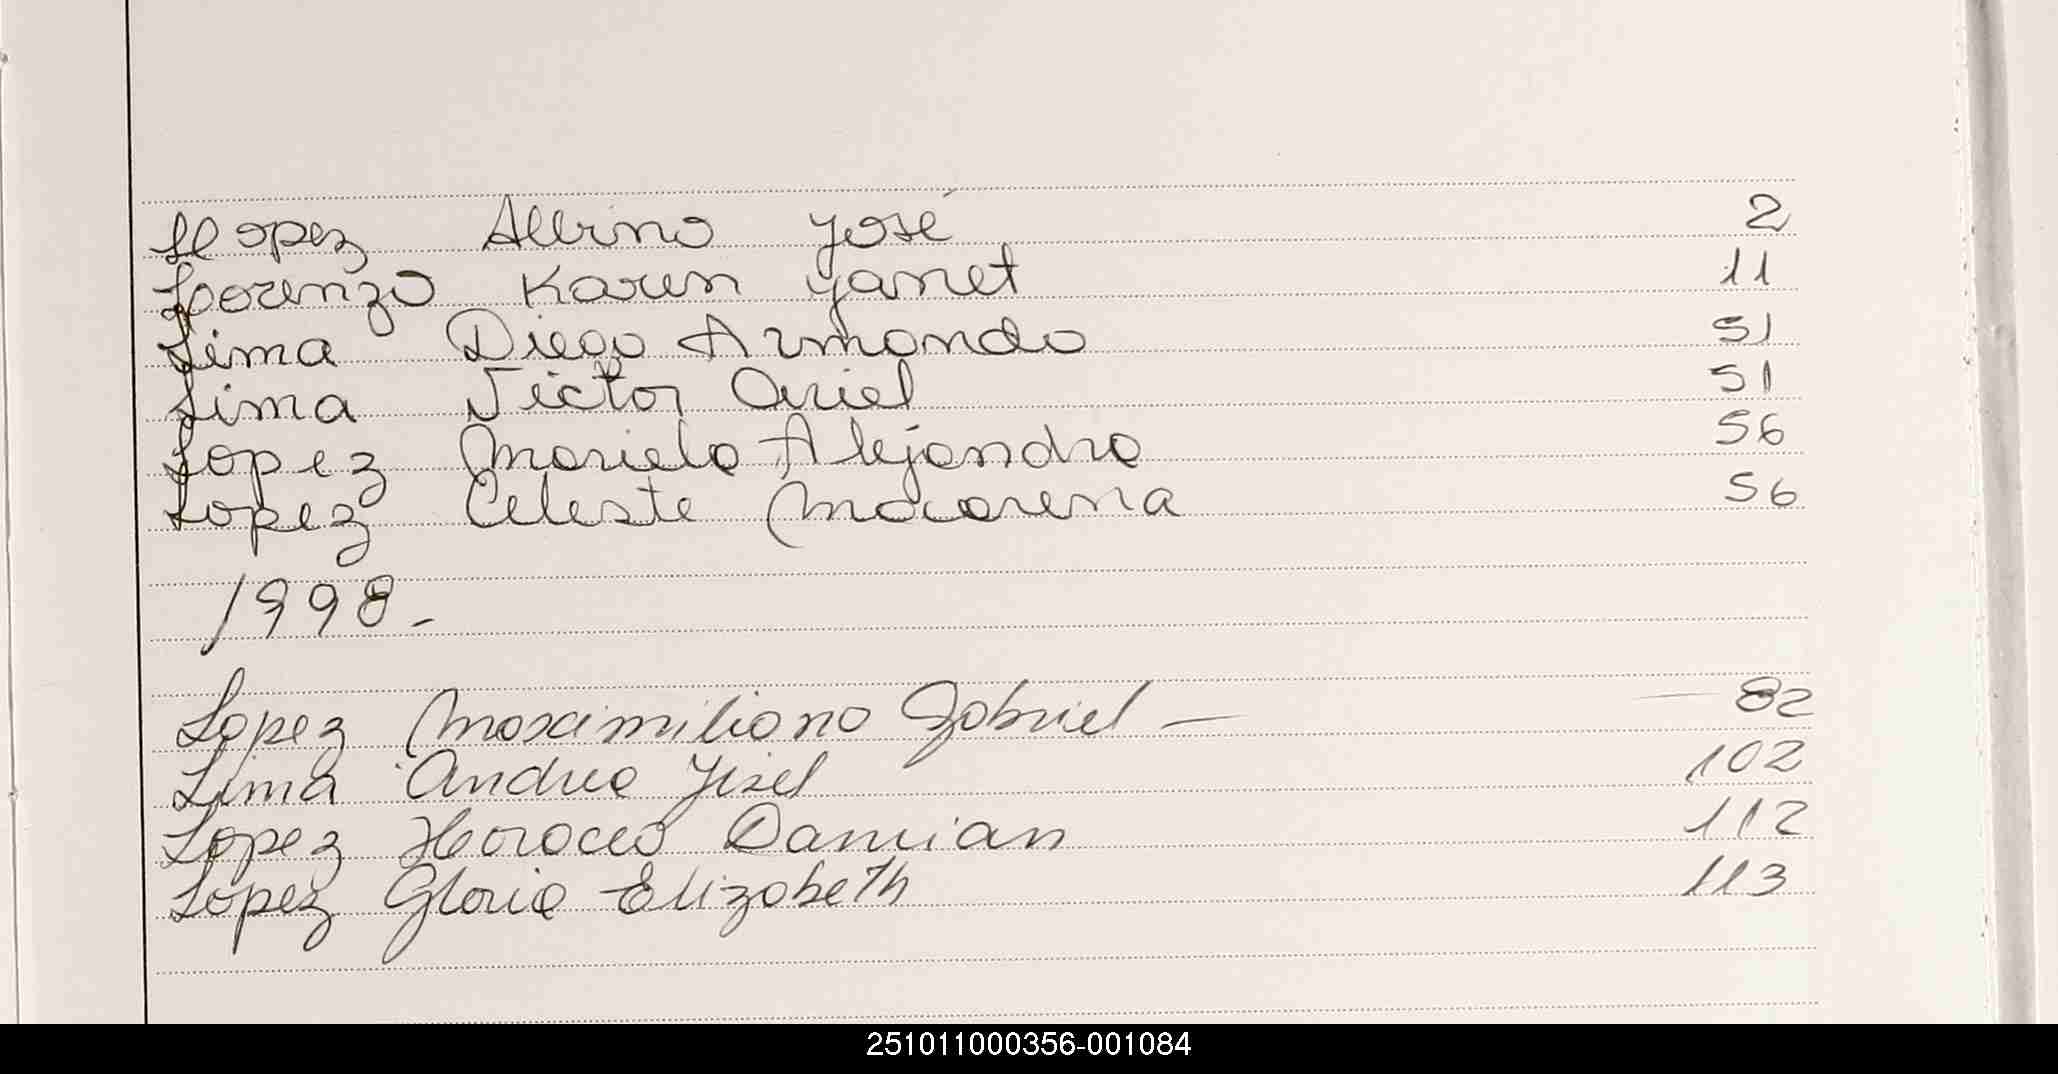 Llopez Albino José 2
Lorenzo Karen Yanet 11
Lima Diego Armando 51
Lima Victor Ariel 51
Lopez Mariela Alejandra 56
Lopez Celeste Macarena 56
1998-
Lopez Maximiliano Gabriel — 82
Lima Andrea Yisel 102
Lopez Horacio Damian 112
Lopez Gloria Elizabeth 113
251011000356-001084